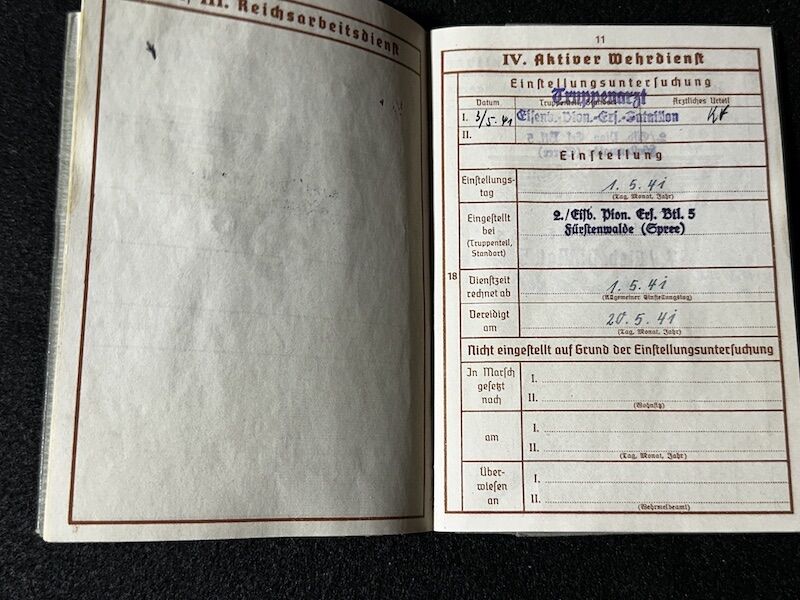 III. Reichsarbeitsdienst
11
IV. Aktiver Wehrdienst
Einstellungsuntersuchung
Truppenarzt
Datum Truppenteil, Standort Ärztliches Urteil
I. 3/5.41 Eisenb.-Pion.-Ers.-Bataillon kv
II.
Einstellung
Einstellungs-
tag
1.5.41
(Tag, Monat, Jahr)
Eingestellt
bei
(Truppenteil,
Standort)
2./Eisb. Pion. Ers. Btl. 5
Fürstenwalde (Spree)
18
Dienstzeit
rechnet ab
1.5.41
(Allgemeiner Einstellungstag)
Vereidigt
am
20.5.41
(Tag, Monat, Jahr)
Nicht eingestellt auf Grund der Einstellungsuntersuchung
In Marsch
gesetzt
nach
I.
II.
(Wohnsitz)
am
I.
II.
(Tag, Monat, Jahr)
Über-
wiesen
an
I.
II.
(Wehrmeldeamt)